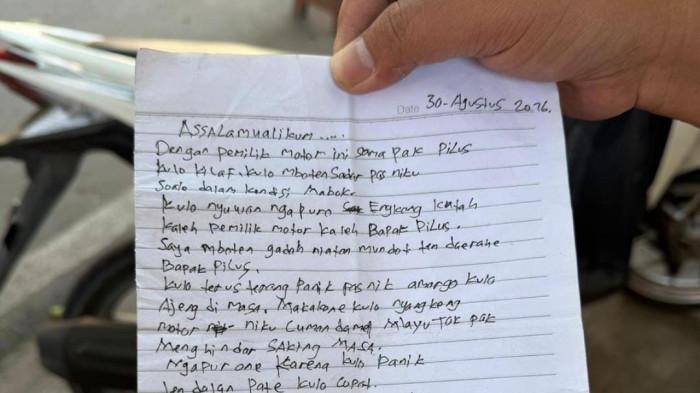 Date 30-Agustus 2026.
ASSALAMUALIKUM.....
Dengan pemilik motor ini sama pak pilus
kulo kilaf. kulo mboten Sadar pas niku
Soale dalam kondisi mabok.
kulo nyuwun ngapuro Engkang kathah
kaleh pemilik motor kaleh Bapak Pilus.
Saya mboten gadah niatan mundot ten daerahe
Bapak Pilus.
kulo terus terang Panik pas nik amargo kulo
Ajeng di masa. Makakone kulo nyongkong
motor niku Cuman damel Mlayu tok pak
Menghindar SAKING MASA.
Ngapurone Karena kulo Panik